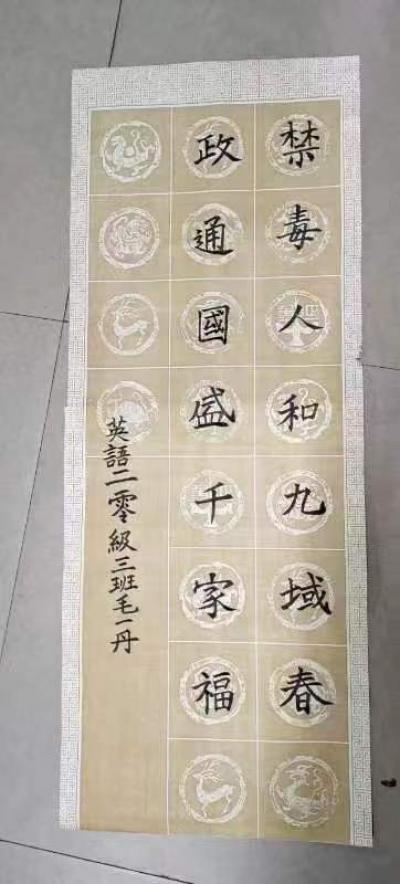 禁毒人和九域春
政通國盛千家福
英語二零級三班毛一丹